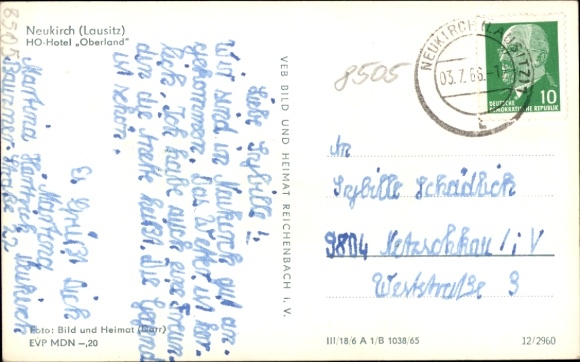 Neukirch (Lausitz)
HO-Hotel „Oberland"
Liebe Sybille!
Wir sind in Neukirch gut an-
gekommen. Das Wetter ist herr-
lich. Ich habe auch eine Freun-
din die Grete heißt. Die Gegend
ist schön.
Es grüßt dich
Martina
Martina Neukirch
8505
VEB BILD UND HEIMAT REICHENBACH I. V.
8505
NEUKIRCH (LAUSITZ) 1
03.7.66.
L
10
DEUTSCHE
DEMOKRATISCHE REPUBLIK
An
Sybille Schädlich
9804 Netzschkau / i V
Weststraße 3
Foto: Bild und Heimat (Darr)
EVP MDN –,20
III/18/6 A 1/B 1038/65
12/2960